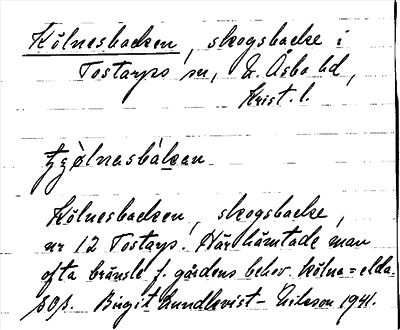 Kölnesbacken, skogsbacke i
Tostarps sn, N. Åsbo hd,
Krist. l.
tjölnasbakan
Kölnesbacken, skogsbacke,
nr 12 Tostarp. Här hämtade man
ofta bränsle f. gårdens behov. Kölna = elda.
Birgit Lundkvist-Nilsson 1941.